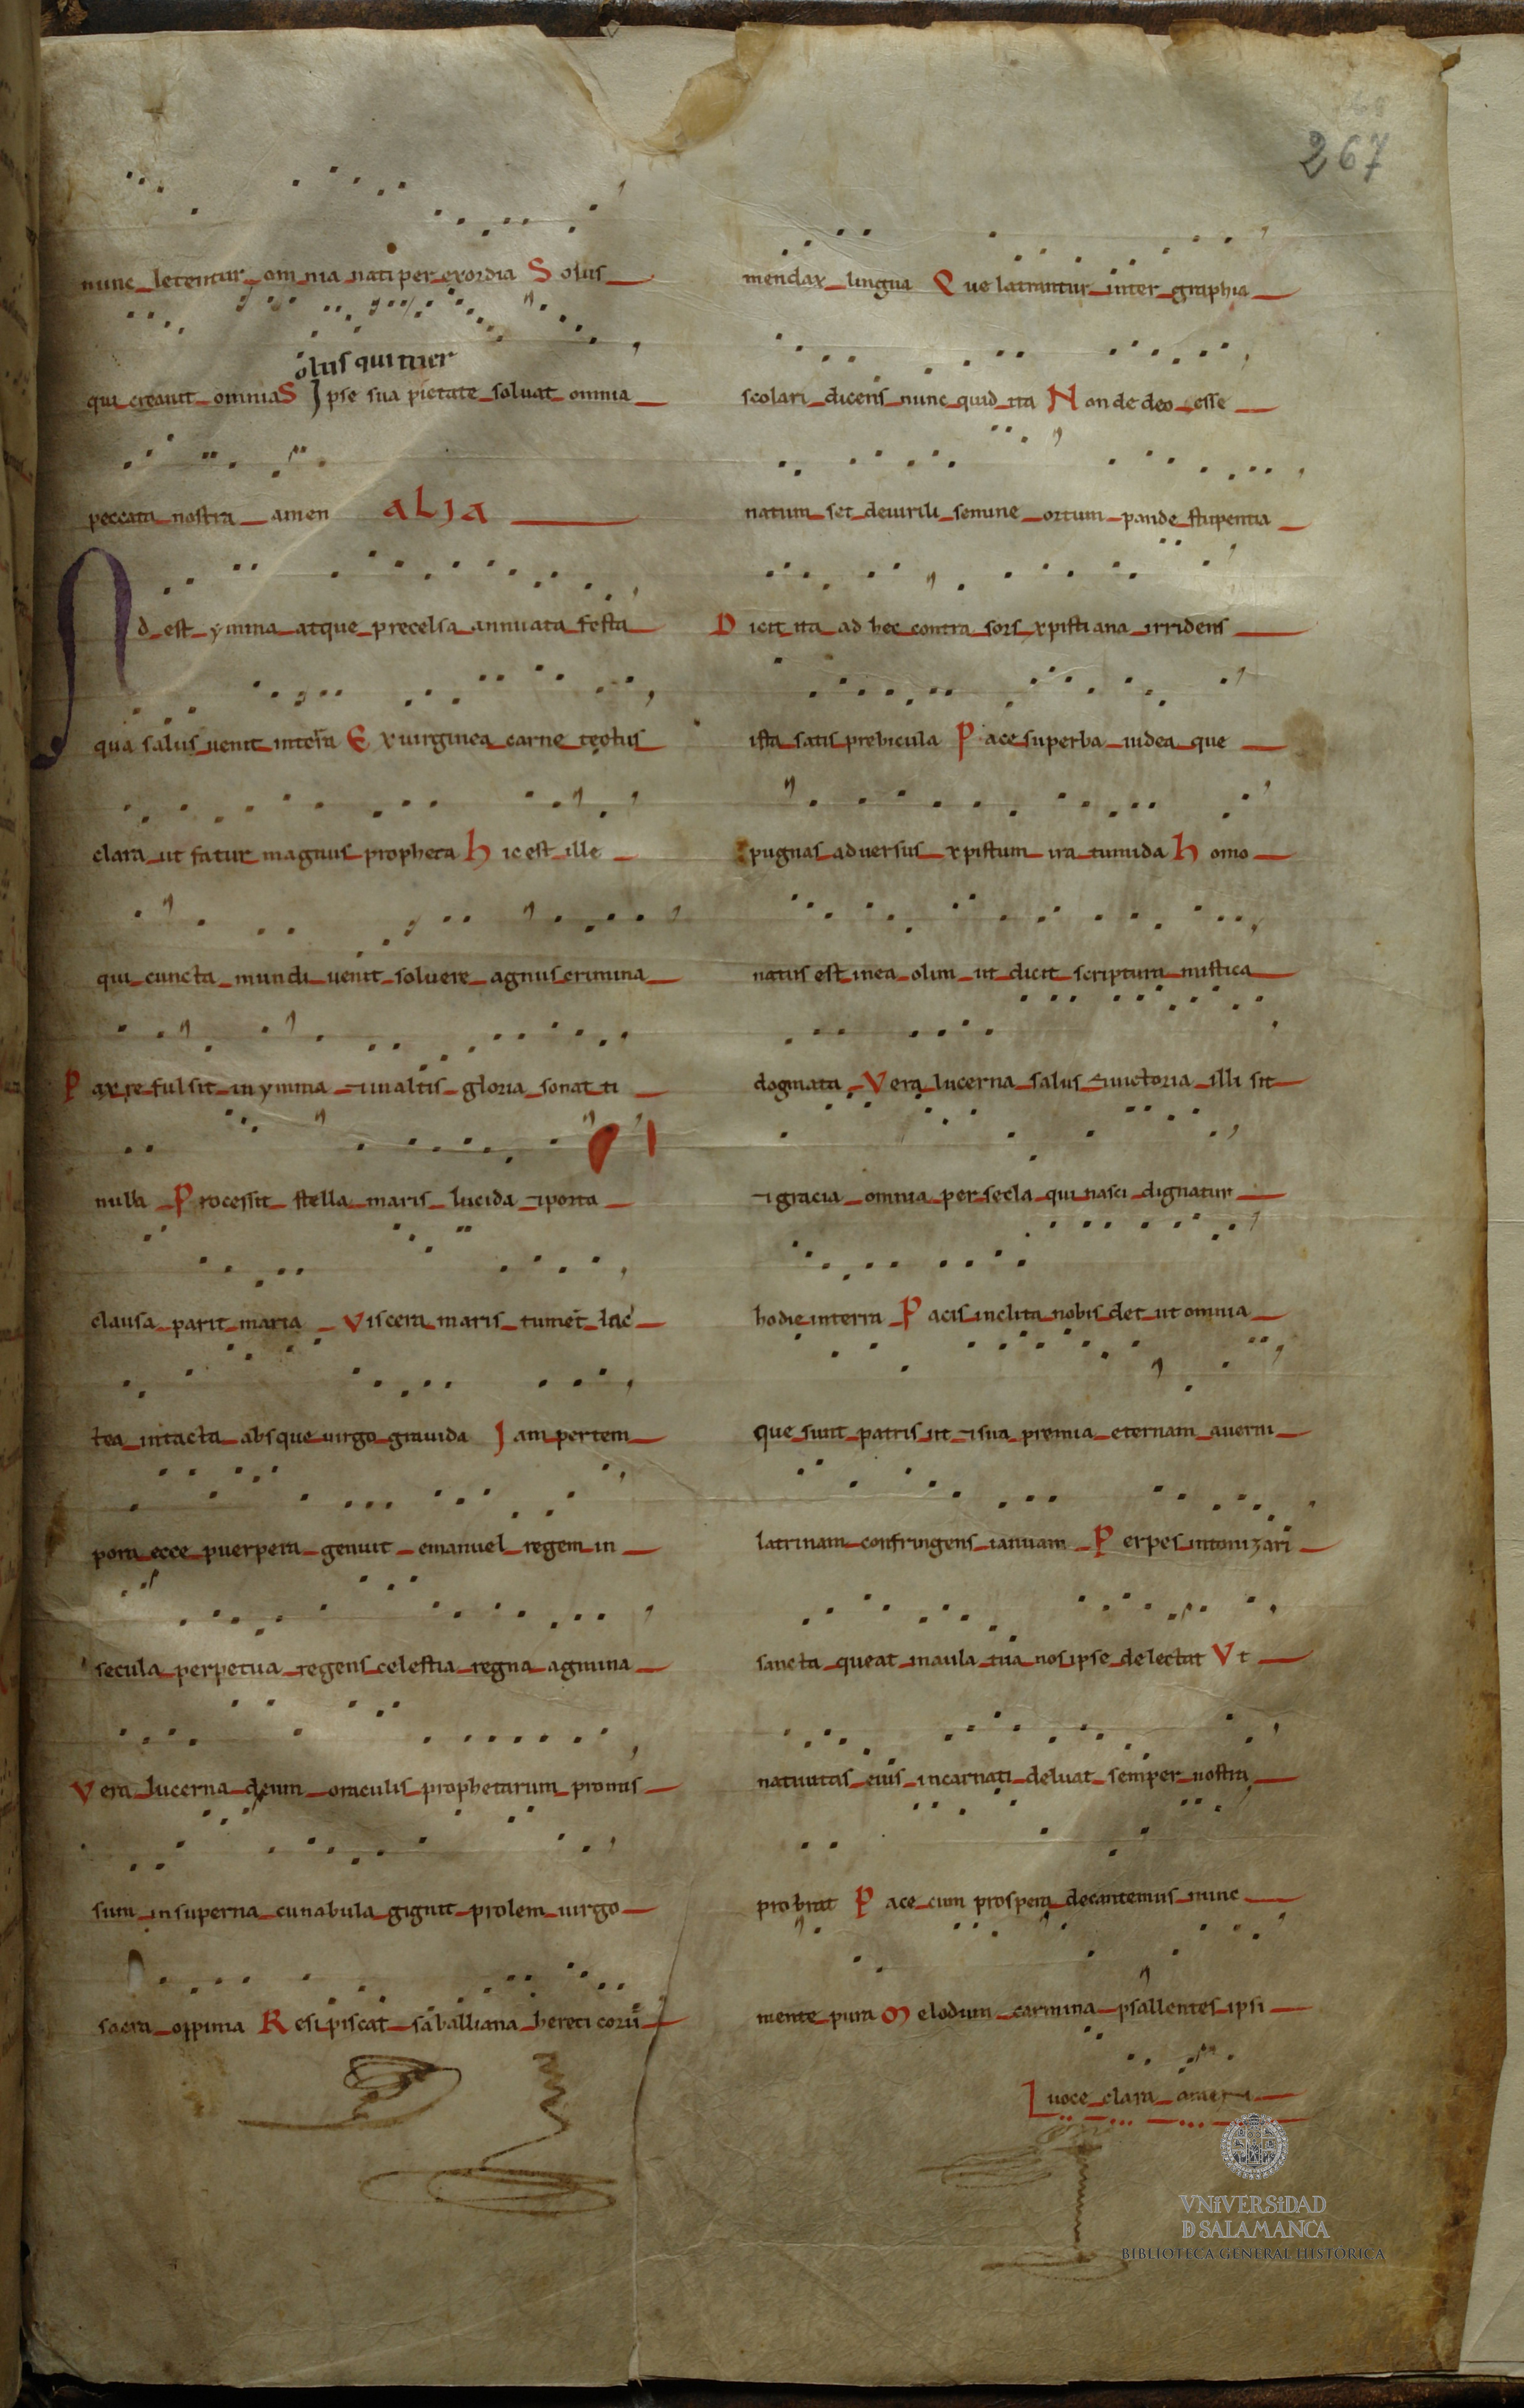 267
nunc letentur omnia nati per exordia Solus
olus qui tuer
qui creauit omnia S Ipse sua pietate soluat omnia
peccata nostra amen ALIA
Adest ymma atque precelsa annuata festa
qua salus uenit interra Ex uirginea carne tectus
clara ut fatur magnus propheta Hic est ille
qui cuncta mundi uenit soluere agnus crimina
Pax refulsit in ymma ⁊ in altis gloria sonat ti
nulla Processit stella maris lucida ⁊ porta
clausa parit maria Viscera maris tumet lac
tea intacta absque uirgo grauida Iam per tem
pora ecce puerpera genuit emanuel regem in
secula perpetua regens celestia regna agmina
Vera lucerna deum oraculis prophetarum promis
sum insuperna cunabula gignit prolem uirgo
sacra oppima Resipiscat saballiana hereticorū
mendax lingua Que latrantur inter graphia
scolari dicens nunc quid ita Non de deo esse
natum set deuirili semine ortum pande stupentia
Dicit ita ad hec contra sors xpistiana irridens
ista satis prebicula Pace superba iudea que
pugnas aduersus xpistum ira tumida Homo
natus est inea olim ut dicit scriptura mistica
dogmata Vera lucerna salus ⁊ uictoria illi sit
⁊ gracia omnia per secla qui nasci dignatur
hodie interra Pacis inclita nobis det ut omnia
que sunt patris sit ⁊ sua premia eternam auerni
latrinam confringens ianuam Perpes intonizari
sancta queat inaula tua nos ipse delectat Vt
natiuitas eius incarnati deluat semper nostra
probrat Pace cum prospera decantemus nunc
mente pura Melodum carmina psallentes ipsi
uoce clara
VNIVERSIDAD
D SALAMANCA
BIBLIOTECA GENERAL HISTÓRICA